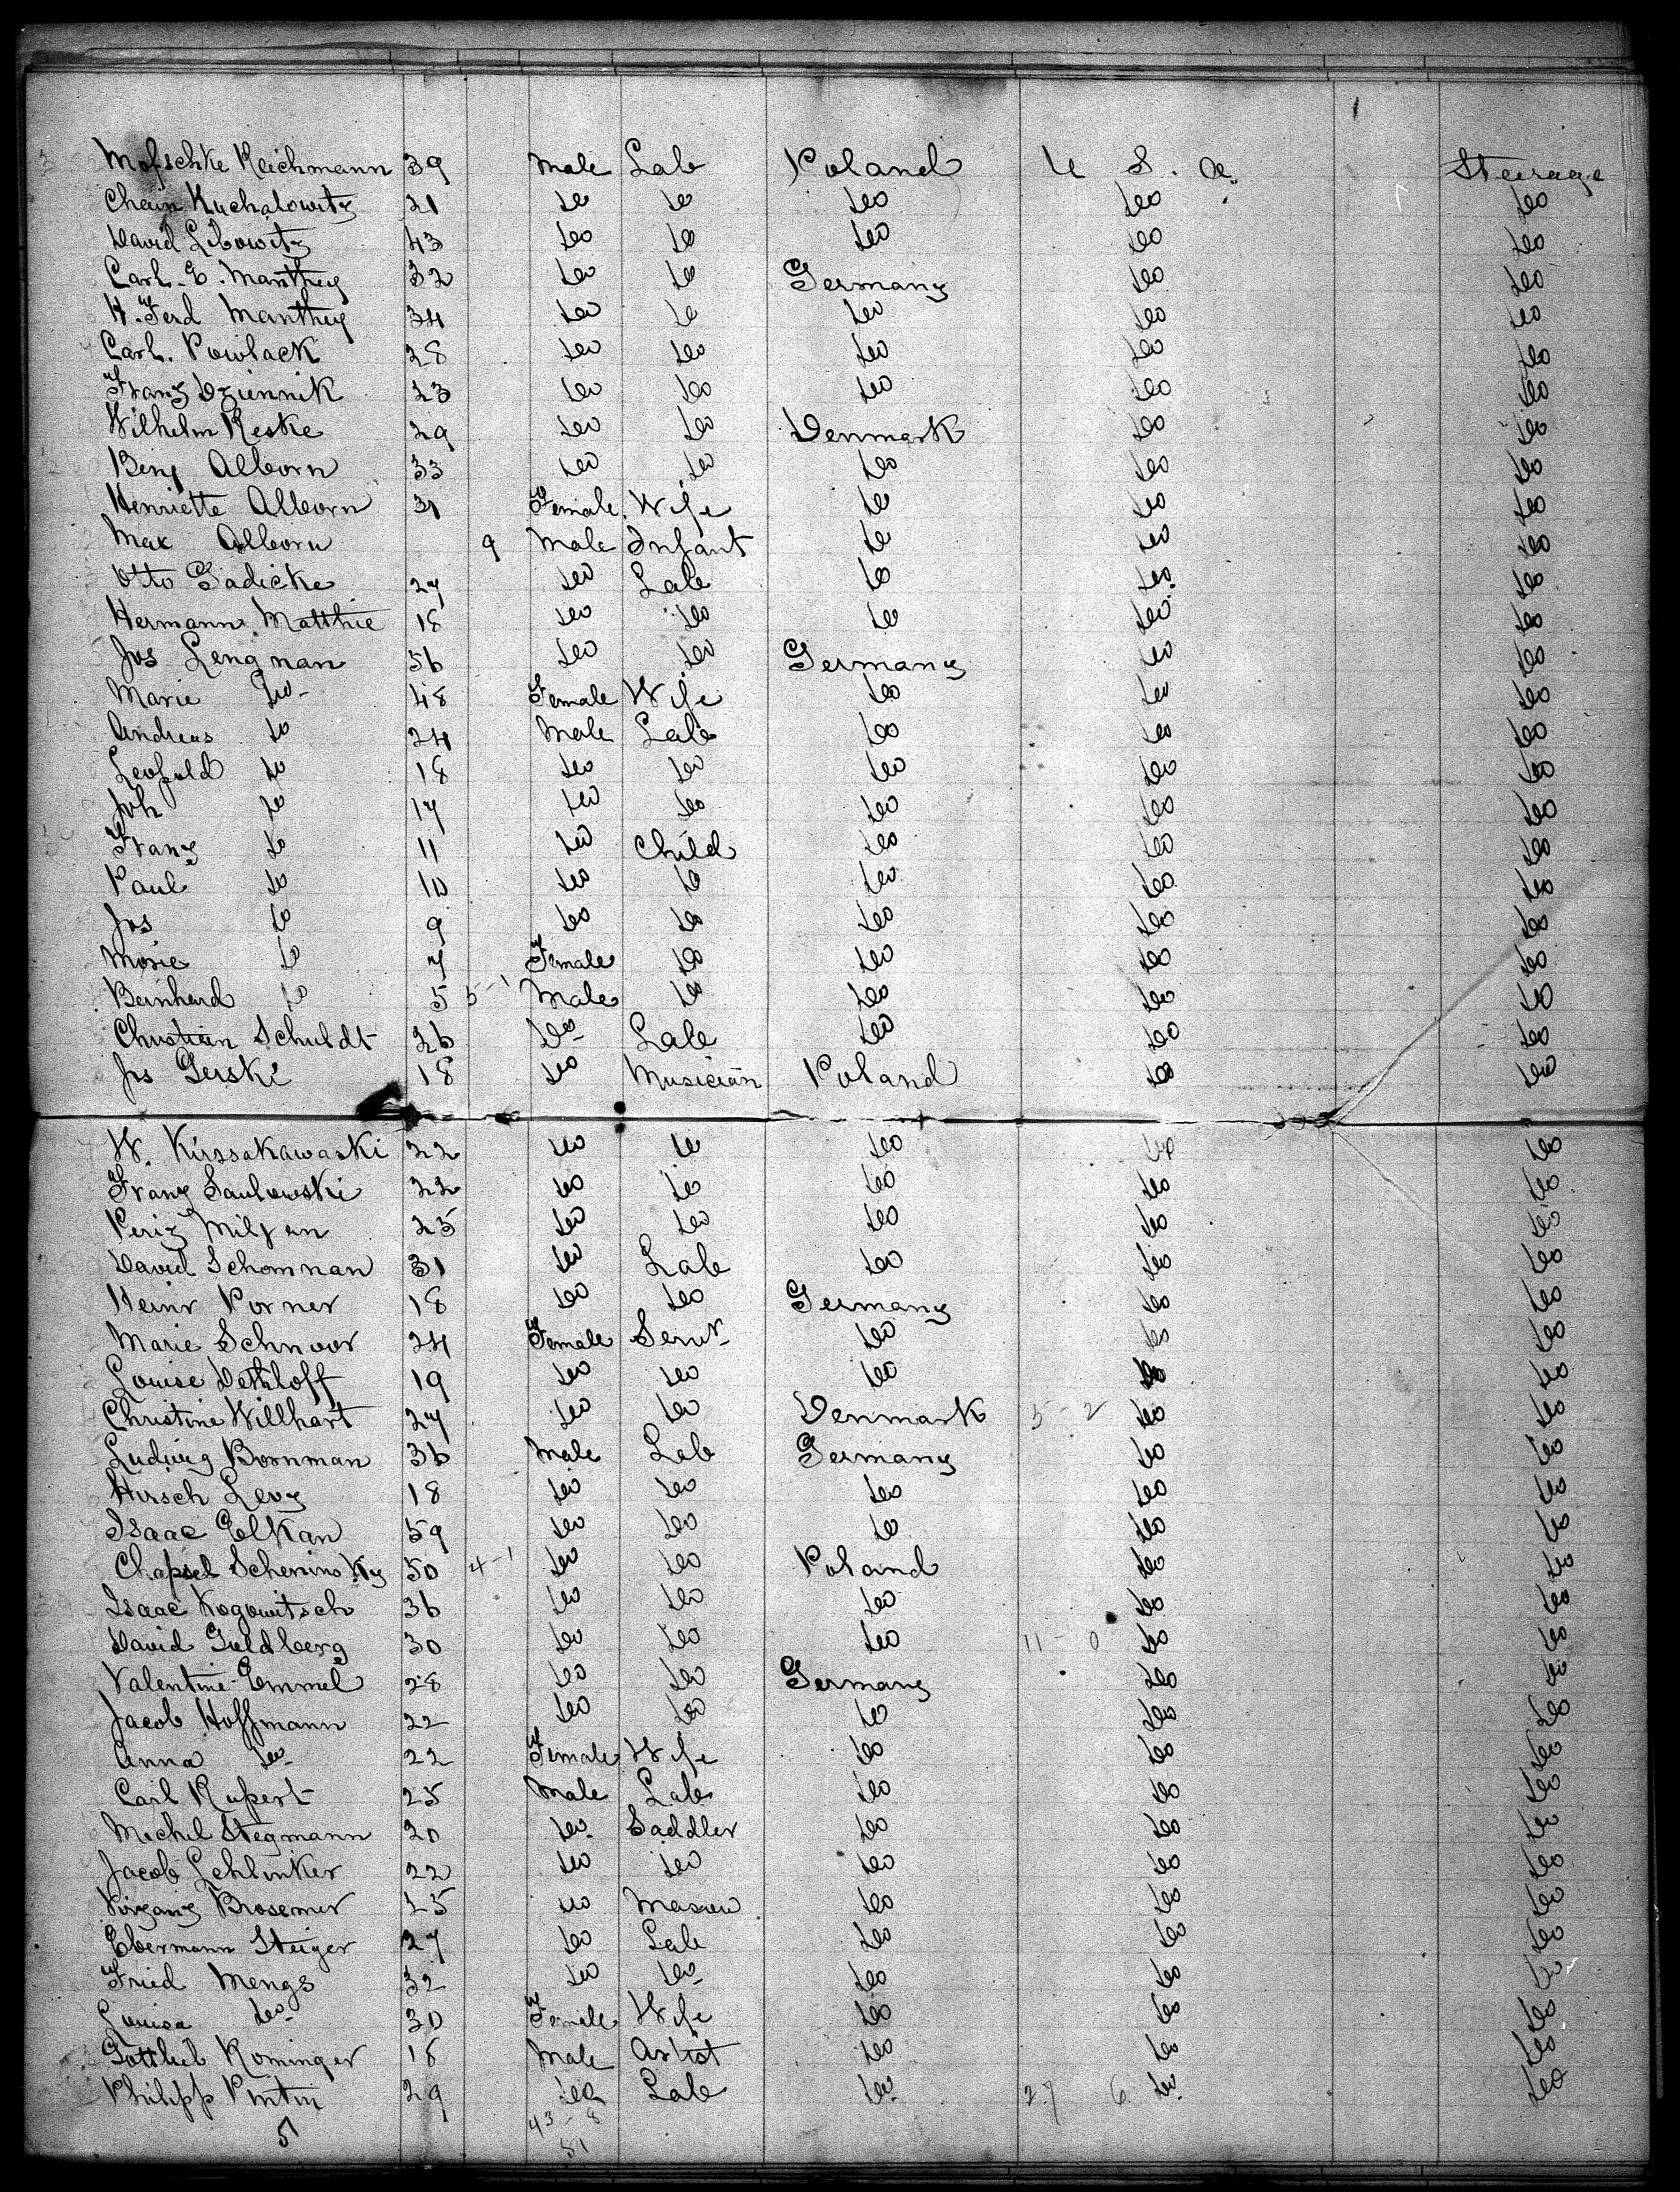 Mosschke Reichmann 39 Male Lab Poland U S. A. Steerage
Chaim Kuchalowitz 21 do do do do do
David Libowitz 43 do do do do do
Carl. E. Manthey 32 do do Germany do do
H. Ferd Manthey 34 do do do do do
Carl. Powlack 28 do do do do do
Franz Dziennik 23 do do do do do
Wilhelm Reske 29 do do Denmark do do
Benj Alborn 33 do do do do do
Henriette Alborn 31 Female Wife do do do
Max Alborn 9 Male Infant do do do
Otto Gadicke 27 do Lab do do do
Hermann Matthie 18 do do do do do
Jos Lengnan 56 do do Germany do do
Marie Do 48 Female Wife do do do
Andreas do 24 Male Lab do do do
Leopold do 18 do do do do do
Joh do 17 do do do do do
Franz do 11 do Child do do do
Paul do 10 do do do do do
Jos do 9 do do do do do
Marie do 7 Female do do do do
Bernhard do 5 5-1 Male do do do do
Christian Schuldt 26 Do Lab do do do
Jos Gerski 18 do Musician Poland do do
W. Kirssakawaski 22 do do do do do
Franz Saulowski 22 do do do do do
Periz Miljan 25 do do do do do
David Schomnan 31 do Lab do do do
Heinr Porner 18 do do Germany do do
Marie Schnoor 24 Female Servt do do do
Louise Dethloff 19 do do do do do
Christine Willhart 27 do do Denmark 5-2 do do
Ludwig Bornman 36 Male Lab Germany do do
Hirsch Levy 18 do do do do do
Isaac Elkan 59 do do do do do
Chapsel Scheninsky 50 4-1 do do Poland do do
Isaac Kogowitsch 36 do do do do do
David Goldberg 30 do do do 11-0 do do
Valentine Emmel 28 do do Germany do do
Jacob Hoffmann 22 do do do do do
Anna do 22 Female Wife do do do
Carl Rupert 25 Male Lab do do do
Michel Stegmann 20 do Saddler do do do
Jacob Schlinker 22 do do do do do
Brosemer 25 do Mason do do do
Ebermann Steiger 27 do Lab do do do
Fried Mengs 32 do do do do do
Louisa do 30 Female Wife do do do
Gottlieb Rominger 18 Male Artist do do do
Philipp 29 do Lab do 27 6 do do
51 43-8
51